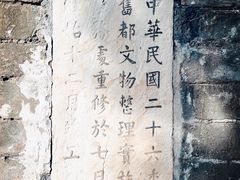 中華民國二十六年
舊都文物整理實
處重修於七月
十二月